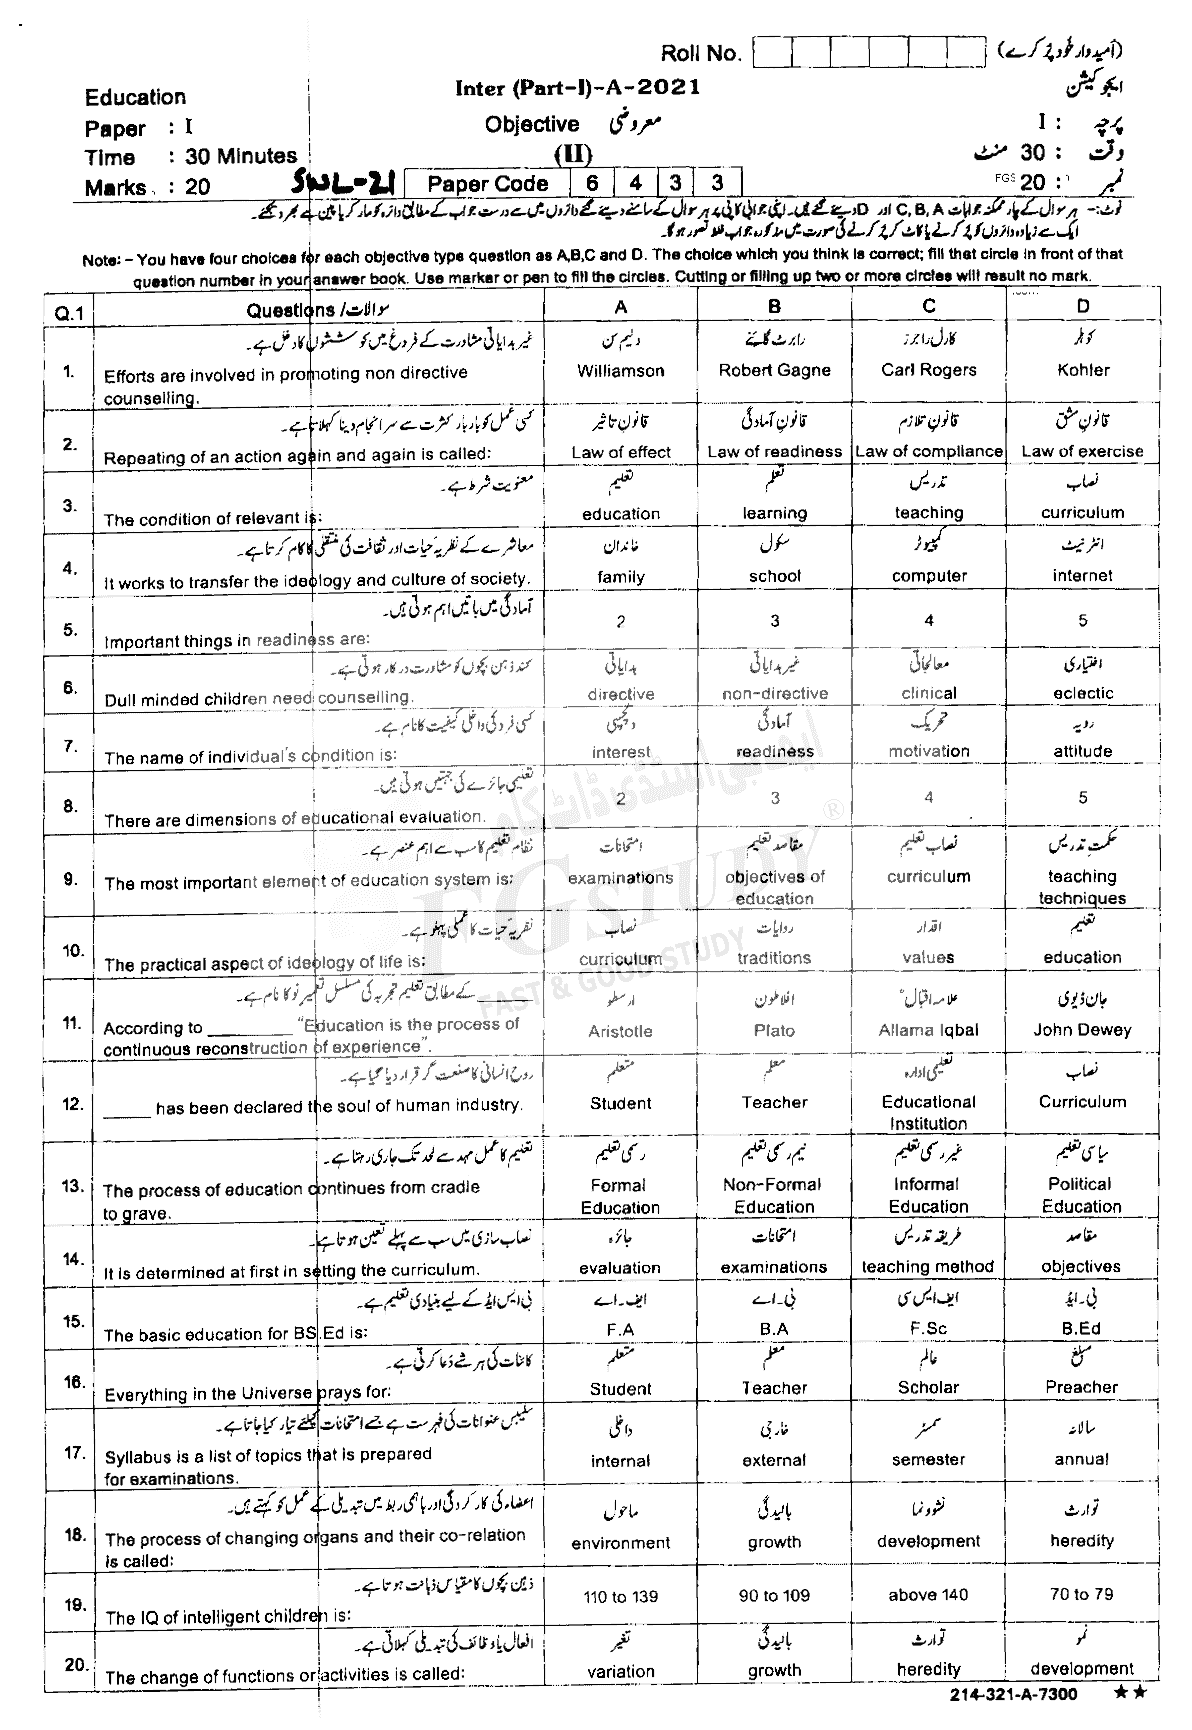 Roll No. (امیدوار خود پُر کرے)
Education Inter (Part-I)-A-2021 ایجوکیشن
Paper : I Objective معروضی پرچہ : I
Time : 30 Minutes (II) وقت : 30 منٹ
Marks : 20 SWL-21 Paper Code 6 4 3 3 نمبر : 20 FGS
نوٹ:- ہر سوال کے چار ممکنہ جوابات A, B, C اور D دیئے گئے ہیں۔ اپنی جوابی کاپی پر ہر سوال کے سامنے دیئے گئے دائروں میں سے درست جواب کے مطابق دائرہ کو مارکر یا پین سے بھر دیجئے۔
ایک سے زیادہ دائروں کو پُر کرنے یا کاٹ کر پُر کرنے کی صورت میں مذکورہ جواب غلط تصور ہوگا۔
Note: – You have four choices for each objective type question as A,B,C and D. The choice which you think is correct; fill that circle in front of that
question number in your answer book. Use marker or pen to fill the circles. Cutting or filling up two or more circles will result no mark.
Q.1 Questions / سوالات A B C D
غیر ہدایاتی مشاورت کے فروغ میں کوششوں کا دخل ہے۔ ولیم سن رابرٹ گایئنے کارل راجرز کوہلر
1. Efforts are involved in promoting non directive Williamson Robert Gagne Carl Rogers Kohler
counselling.
کسی عمل کو بار بار کثرت سے سرانجام دینا کہلاتا ہے۔ قانونِ تاثیر قانونِ آمادگی قانونِ تلازم قانونِ مشق
2. Repeating of an action again and again is called: Law of effect Law of readiness Law of compliance Law of exercise
معنویت شرط ہے۔ تعلیم تعلم تدریس نصاب
3. The condition of relevant is: education learning teaching curriculum
معاشرے کے نظریہ حیات اور ثقافت کی منتقلی کا کام کرتا ہے۔ خاندان سکول کمپیوٹر انٹرنیٹ
4. It works to transfer the ideology and culture of society. family school computer internet
آمادگی میں باتیں اہم ہوتی ہیں۔
5. Important things in readiness are: 2 3 4 5
کند ذہن بچوں کو مشاورت درکار ہوتی ہے۔ ہدایاتی غیر ہدایاتی معالجاتی اختیاری
6. Dull minded children need counselling. directive non-directive clinical eclectic
کسی فرد کی داخلی کیفیت کا نام ہے۔ دلچسپی آمادگی تحریک رویہ
7. The name of individual's condition is: interest readiness motivation attitude
تعلیمی جائزے کی جہتیں ہوتی ہیں۔
8. There are dimensions of educational evaluation. 2 3 4 5
نظام تعلیم کا سب سے اہم عنصر ہے۔ امتحانات مقاصد تعلیم نصاب تعلیم حکمت تدریس
9. The most important element of education system is: examinations objectives of education curriculum teaching techniques
نظریہ حیات کا عملی پہلو ہے۔ نصاب روایات اقدار تعلیم
10. The practical aspect of ideology of life is: curriculum traditions values education
______ کے مطابق تعلیم تجربہ کی مسلسل تعمیر نو کا نام ہے۔ ارسطو افلاطون علامہ اقبالؒ جان ڈیوی
11. According to ________ "Education is the process of Aristotle Plato Allama Iqbal John Dewey
continuous reconstruction of experience".
روح انسانی کا صنعت گر قرار دیا گیا ہے۔ متعلم معلم تعلیمی ادارہ نصاب
12. _____ has been declared the soul of human industry. Student Teacher Educational Institution Curriculum
تعلیم کا عمل مہد سے لحد تک جاری رہتا ہے۔ رسمی تعلیم نیم رسمی تعلیم غیر رسمی تعلیم سیاسی تعلیم
13. The process of education continues from cradle Formal Education Non-Formal Education Informal Education Political Education
to grave.
نصاب سازی میں سب سے پہلے تعین ہوتا ہے۔ جائزہ امتحانات طریقہ تدریس مقاصد
14. It is determined at first in setting the curriculum. evaluation examinations teaching method objectives
بی ایس ایڈ کے لیے بنیادی تعلیم ہے۔ ایف۔اے بی۔اے ایف ایس سی بی۔ایڈ
15. The basic education for BS.Ed is: F.A B.A F.Sc B.Ed
کائنات کی ہر شے دعا کرتی ہے۔ متعلم معلم عالم مبلغ
16. Everything in the Universe prays for: Student Teacher Scholar Preacher
سلیبس عنوانات کی فہرست ہے جسے امتحانات کیلئے تیار کیا جاتا ہے۔ داخلی خارجی سمسٹر سالانہ
17. Syllabus is a list of topics that is prepared internal external semester annual
for examinations.
اعضاء کی کارکردگی اور باہمی ربط میں تبدیلی کے عمل کو کہتے ہیں۔ ماحول بالیدگی نشوونما توارث
18. The process of changing organs and their co-relation environment growth development heredity
is called:
ذہین بچوں کا مقیاس ذہانت ہوتا ہے۔
19. The IQ of intelligent children is: 110 to 139 90 to 109 above 140 70 to 79
افعال یا وظائف کی تبدیلی کہلاتی ہے۔ تغیر بالیدگی توارث نمو
20. The change of functions or activities is called: variation growth heredity development
214-321-A-7300 ★★
ایف جی اسٹڈی ڈاٹ کام
FG STUDY ®
FAST & GOOD STUDY